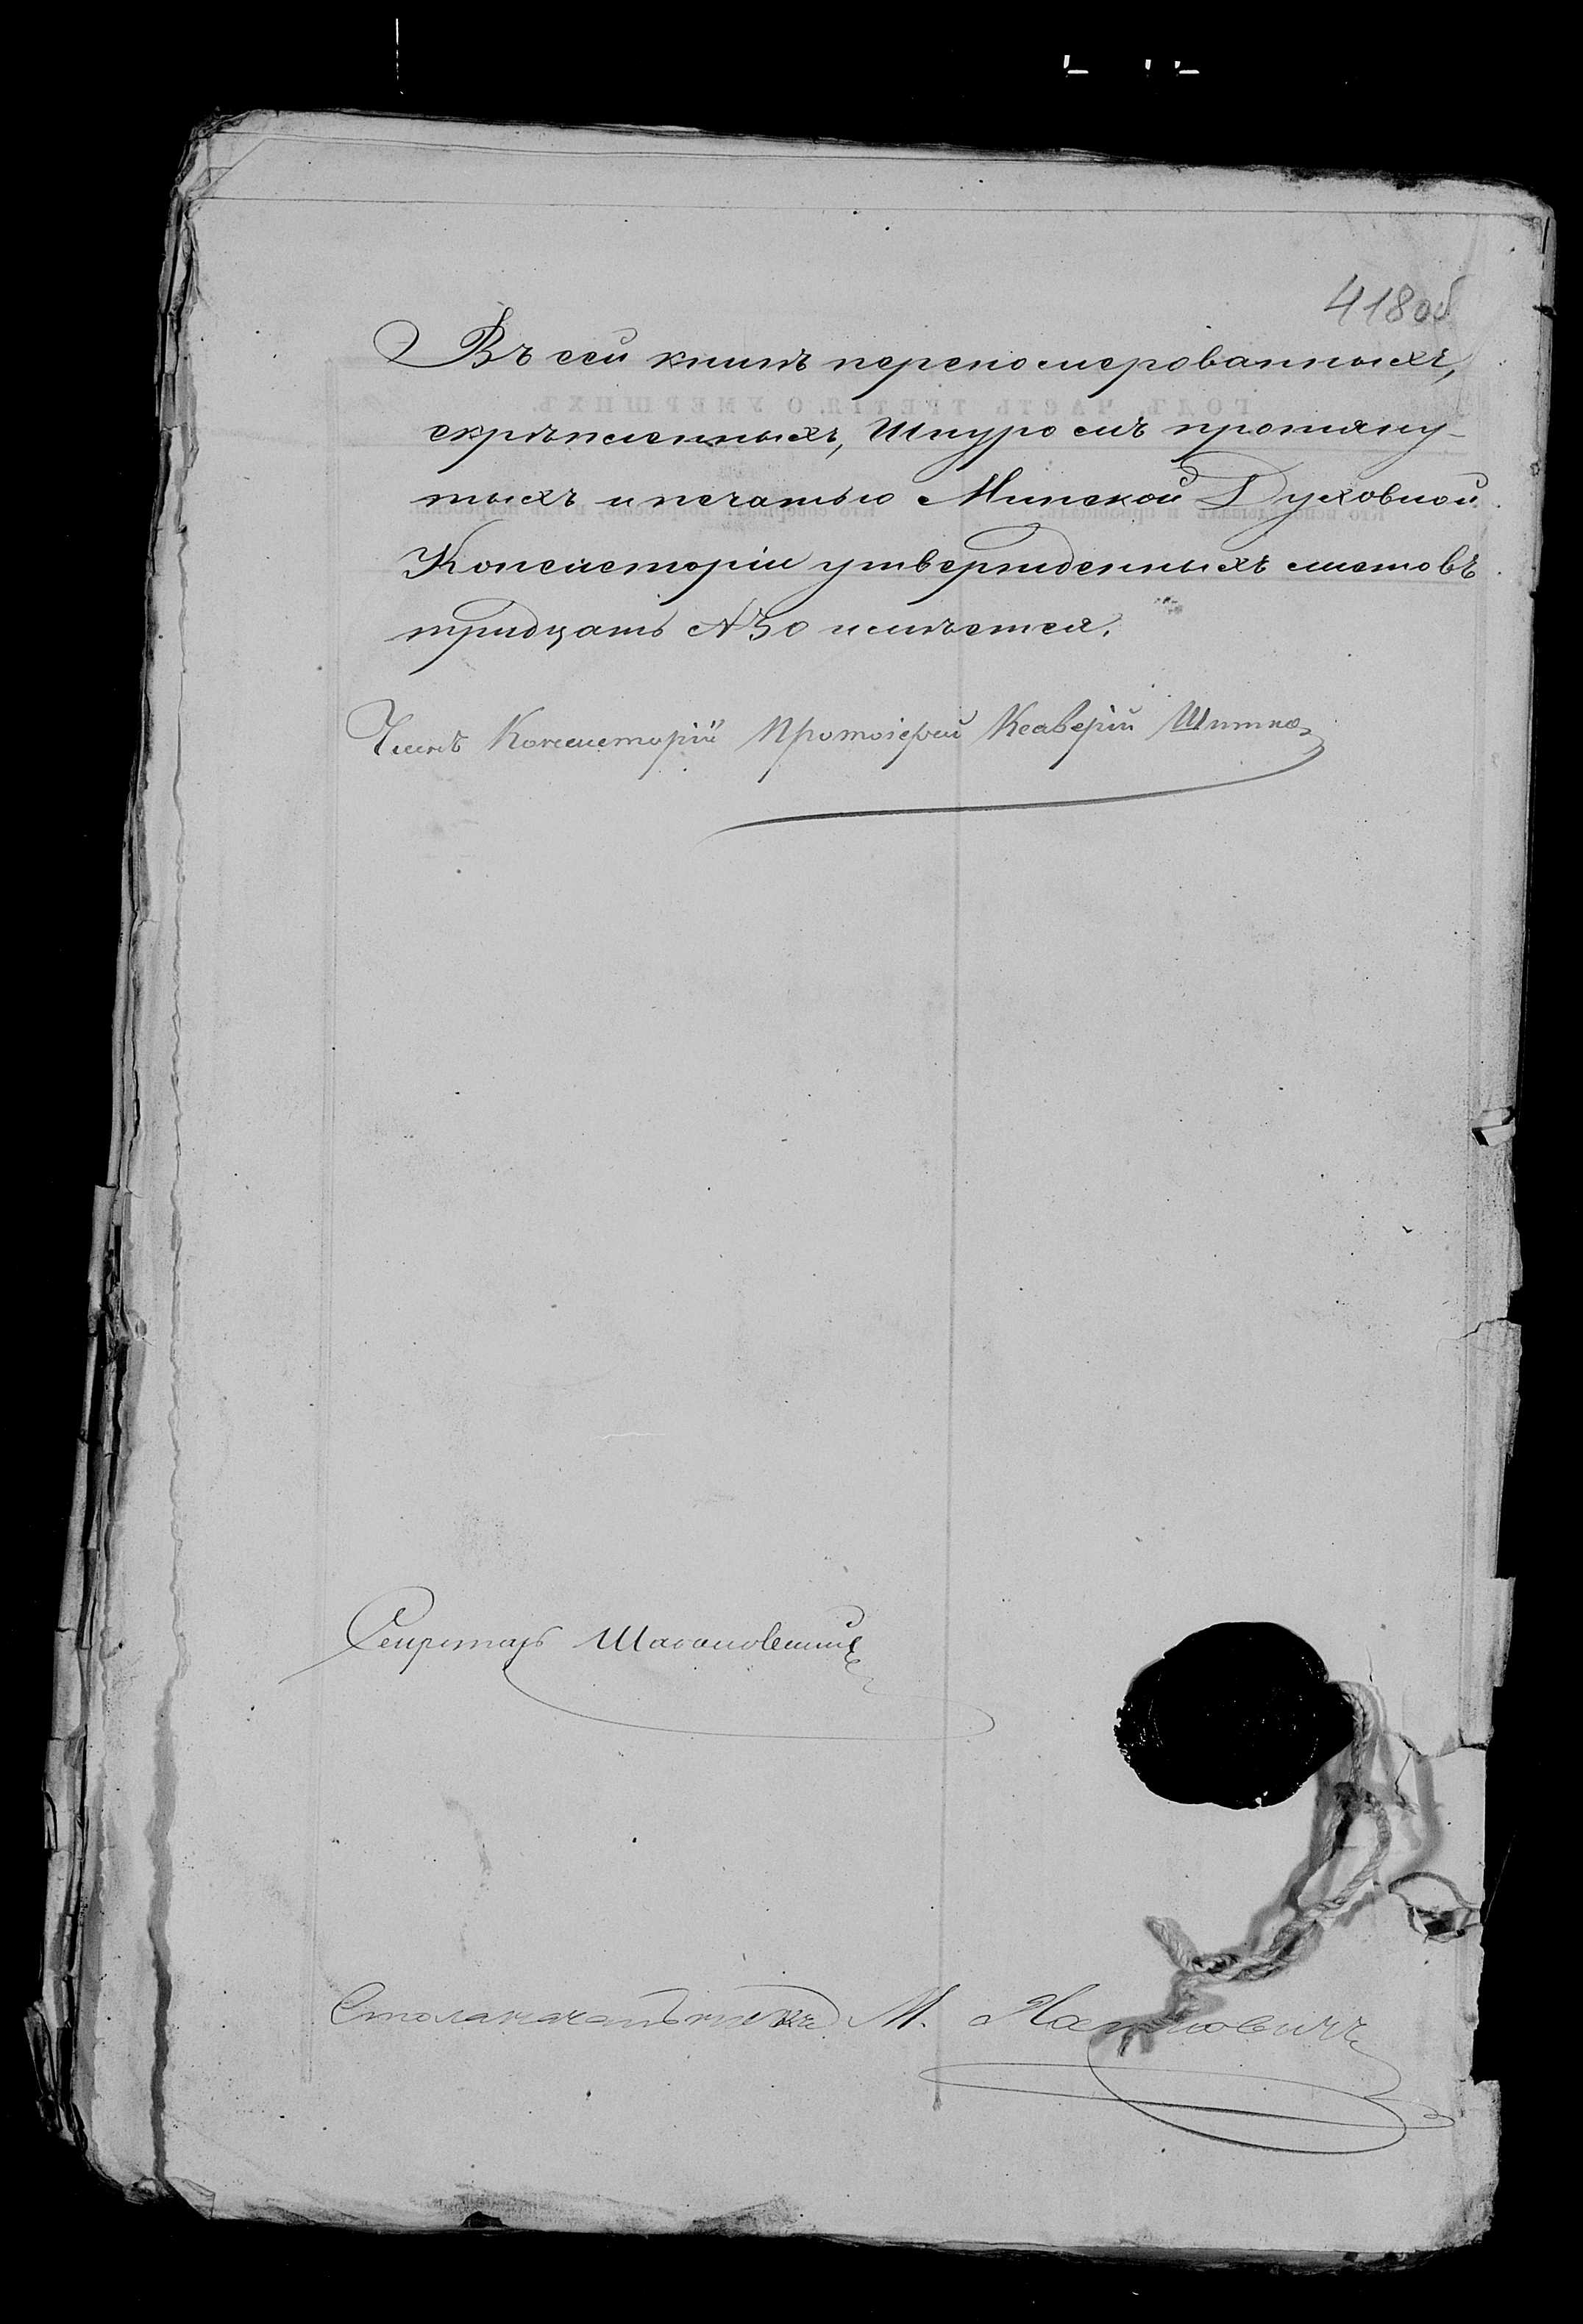 418 об
Въ сей книгѣ перепомерованныхъ,
скрѣпленныхъ, Шнуромъ протяну-
тыхъ и печатью Минской Духовной
Консисторіи утвержденныхъ листовъ
тридцать №30 имѣется.
Членъ Консисторіи Протоіерей Ксаверій
Секретарь
Столоначальникъ М.